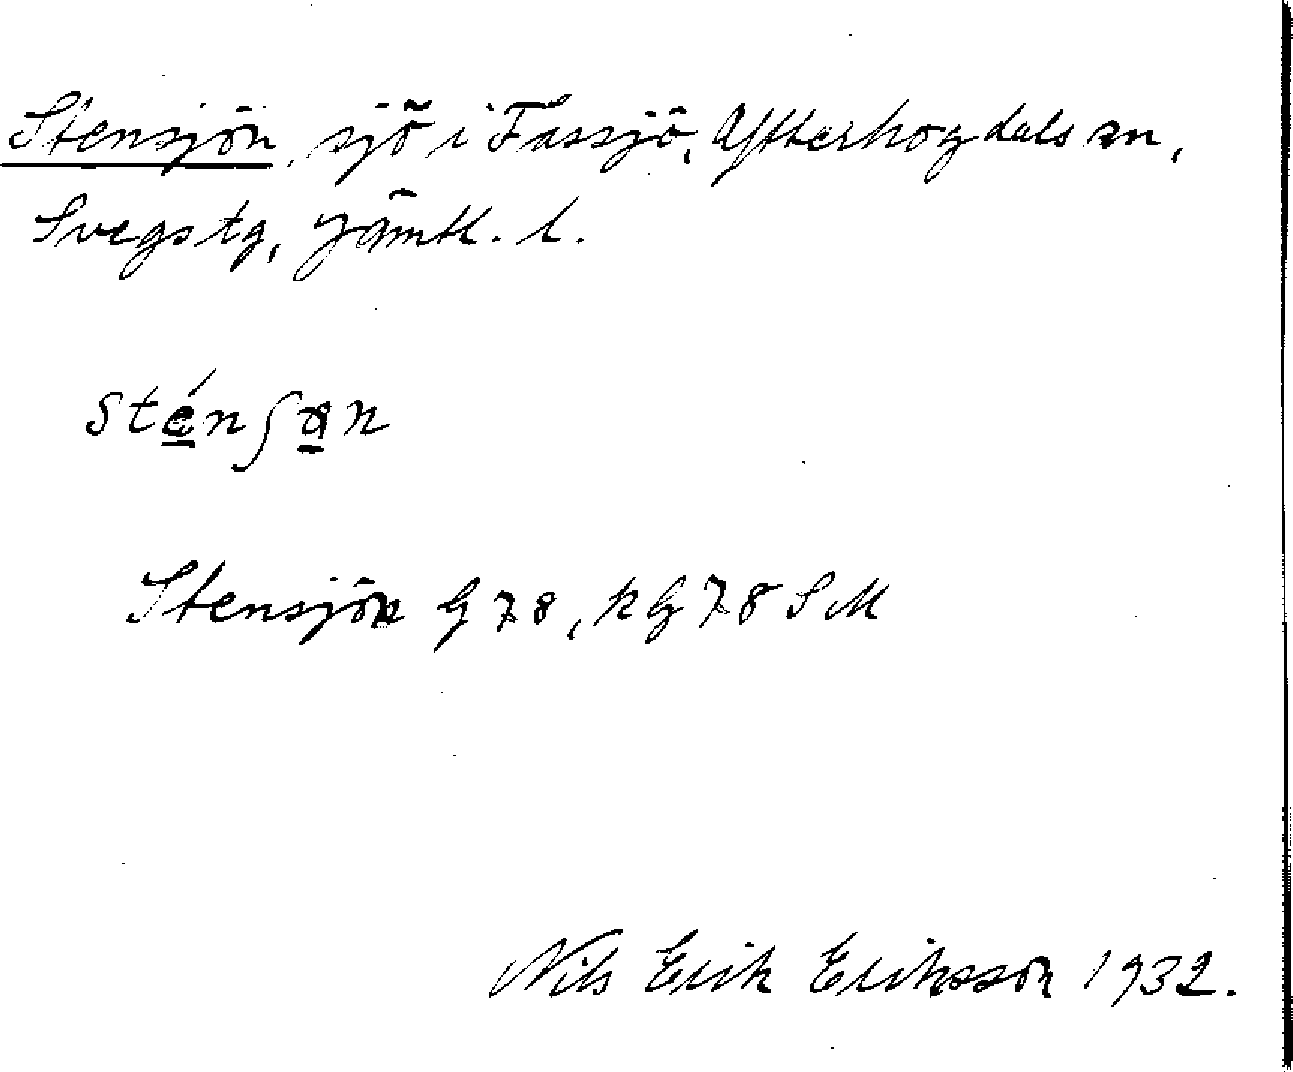 Stensjön, sjö i Fassjö, Ytterhogdals sn,
Svegs tg, Jämtl. l.
sténʃøn
Stensjön G 78, kG 78 SM
Nils Erik Eriksson 1932.